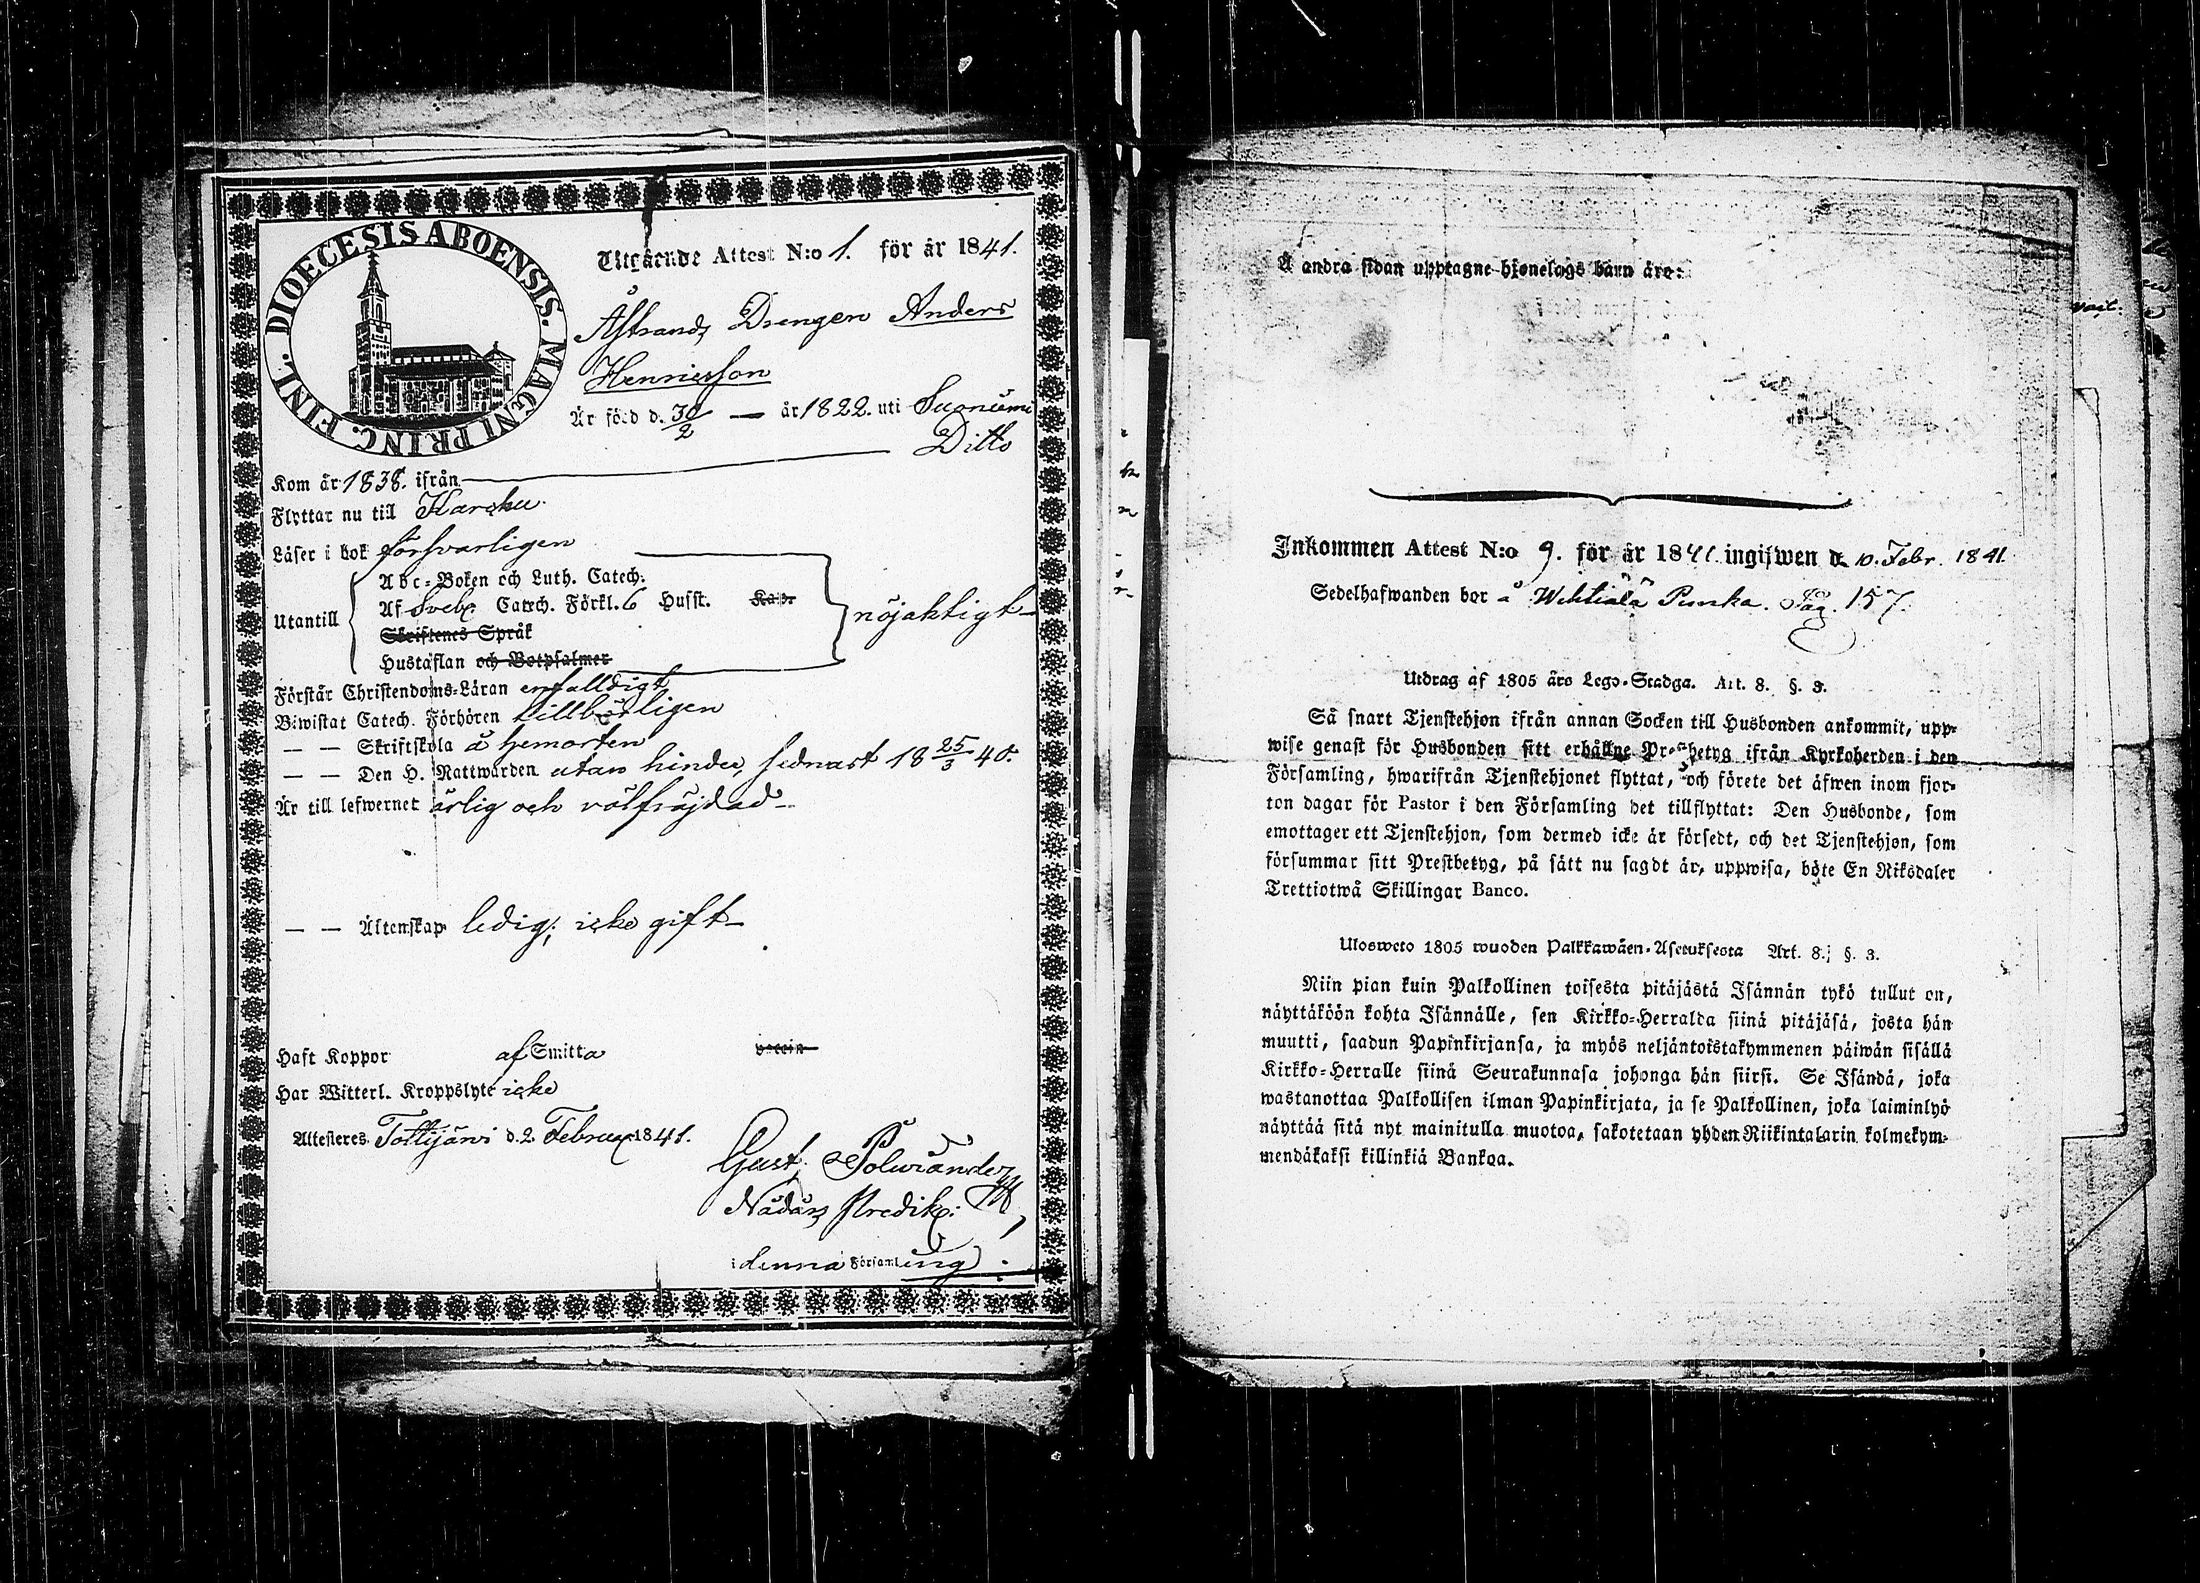 DIOECESIS ABOENSIS. MAGNI PRINC. FINL.
Utgående Attest N:o 1. för år 1841.
Åstrands Drengen Anders
Henricsson
Är född d. 30/2 — år 1822. uti Suoniemi
Kom år 1838. ifrån — Ditto
Flyttar nu till Karcku.
Läser i bok försvarligen
Abc-Boken och Luth. Catech.
Utantill Af Sveb. Catech. Förkl. 6 Husst. nöjaktigt
Skriftenes Språk
Hustaflan och Botpsalmer
Förstår Christendoms-Läran enfalldigt
Biwistat Catech. Förhören tillbörligen
— — Skriftskola å hemorten
— — Den H. Nattwarden utan hinder, sednast 18 25/3 40.
Är till lefwernet ärlig och välfräjdad
— — Äktenskap ledig; icke gift
Haft Koppor af Smitta
Har Witterl. Kroppslyte icke
Attesteres Tottijärvi d. 2 Februar 1841.
Gust. Polviander
Nådårs Predik:
i denna Församling
Å andra sidan upptagne hjonelags barn äro:
Inkommen Attest N:o 9. för år 1841 ingifwen d. 10. Febr. 1841.
Sedelhafwanden bor å Wehtiälä Punka. Pag. 157.
Utdrag af 1805 års Lego-Stadga. Art. 8. §. 3.
Så snart Tjenstehjon ifrån annan Socken till Husbonden ankommit, upp-
wise genast för Husbonden sitt erhållne Prestbetyg ifrån Kyrkoherden i den
Församling, hwarifrån Tjenstehjonet flyttat, och förete det äfwen inom fjor-
ton dagar för Pastor i den Församling det tillflyttat: Den Husbonde, som
emottager ett Tjenstehjon, som dermed icke är försedt, och det Tjenstehjon, som
försummar sitt Prestbetyg, på sätt nu sagdt är, uppwisa, böte En Riksdaler
Trettiotwå Skillingar Banco.
Ulosweto 1805 wuoden Palkkawäen-Asetuksesta Art. 8. §. 3.
Niin pian kuin Palkollinen toisesta pitäjästä Isännän tykö tullut on,
näyttäköön kohta Isännälle, sen Kirkko-Herralda siinä pitäjäsä, josta hän
muutti, saadun Papinkirjansa, ja myös neljäntoistakymmenen päiwän sisällä
Kirkko-Herralle siinä Seurakunnasa johonga hän siirsi. Se Isändä, joka
wastanottaa Palkollisen ilman Papinkirjata, ja se Palkollinen, joka laiminlyö
näyttää sitä nyt mainitulla muotoa, sakotetaan yhden Riikintalarin kolmekym-
mendäkaksi killinkiä Bankoa.